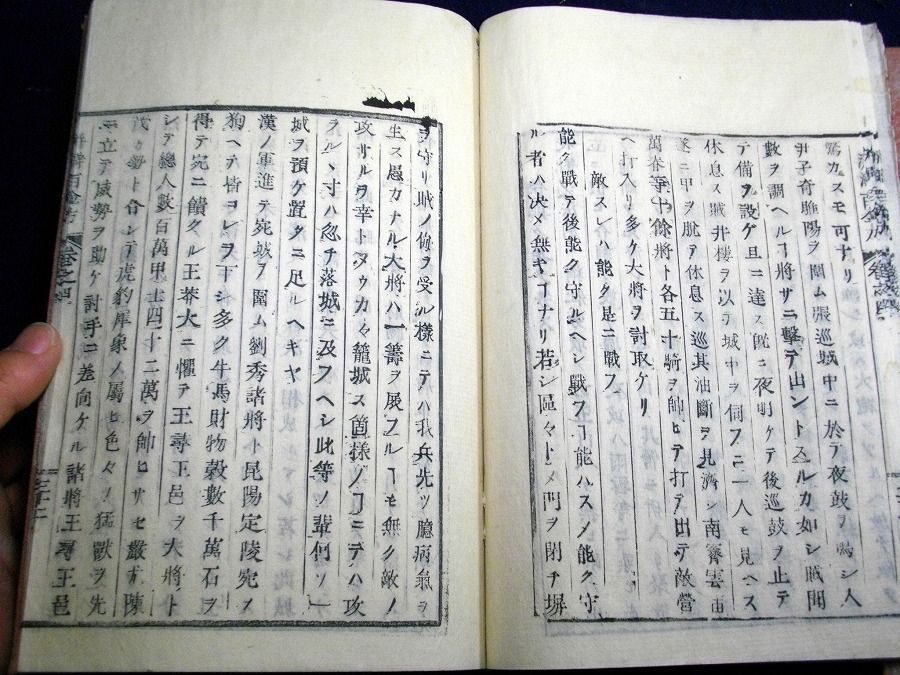 驚カスモ可ナリ
尹子奇睢陽ヲ圍ム張巡城中ニ於テ夜鼓ヲ鳴シ人
數ヲ調ヘルヿ將サニ擊テ出ントスルカ如シ賊聞
テ備ヲ設ケ旦ニ達ス既ニ夜明ケテ後巡鼓ヲ止テ
休息ス賊井樓ヲ以テ城中ヲ伺フニ一人モ見ヘス
遂ニ甲ヲ脫テ休息ス巡其油斷ヲ見濟シ南霽雲
萬春等十餘將ト各五十騎ヲ帥ヒテ打テ出テ敵營
ヘ打入リ多ク大將ヲ討取ケリ
敵スレハ能ク是ニ戰フ
能ク戰テ後能ク守ルヘシ戰フヿ能ハスメ能ク守
ル者ハ決メ無キヿナリ若シ區々トメ門ヲ閉チ塀
ヲ守リ賊ノ侮ヲ受ル樣ニテハ我兵先ツ臆病氣ヲ
生ス愚カナル大將ハ一籌ヲ展フルヿモ無ク敵ノ
攻サルヲ幸トメウカ々々籠城ス箇樣ノヿニテハ攻
ラルヽ寸ハ忽チ落城ニ及フヘシ此等ノ輩何ソ一
城ヲ預ケ置クニ足ルヘキヤ
漢ノ軍進テ宛城ヲ圍ム劉秀諸將ト昆陽定陵宛ヲ
狥ヘテ皆コレヲ下シ多ク牛馬財物穀數千萬石ヲ
得テ宛ニ饋クル王莽大ニ懼テ王尋王邑ヲ大將ト
シテ總人數百萬甲士四十二萬ヲ帥ヒサセ嚴尤陳
茂ト合シテ虎豹犀象ノ屬ヒ色々ノ猛獸ヲ先
ニ立テ威勢ヲ助ケ討手ニ差向ケル諸將王尋王邑
百金方
卷之四